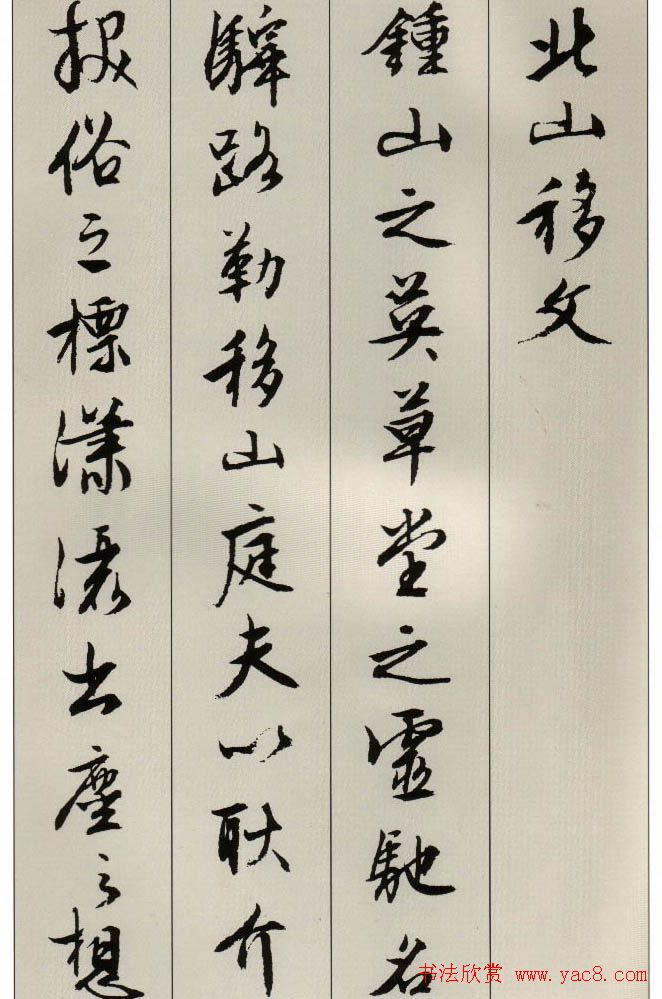 北山移文
鍾山之英草堂之靈馳名
驛路勒移山庭夫以耿介
拔俗之標瀟灑出塵之想
书法欣赏 www.yac8.com